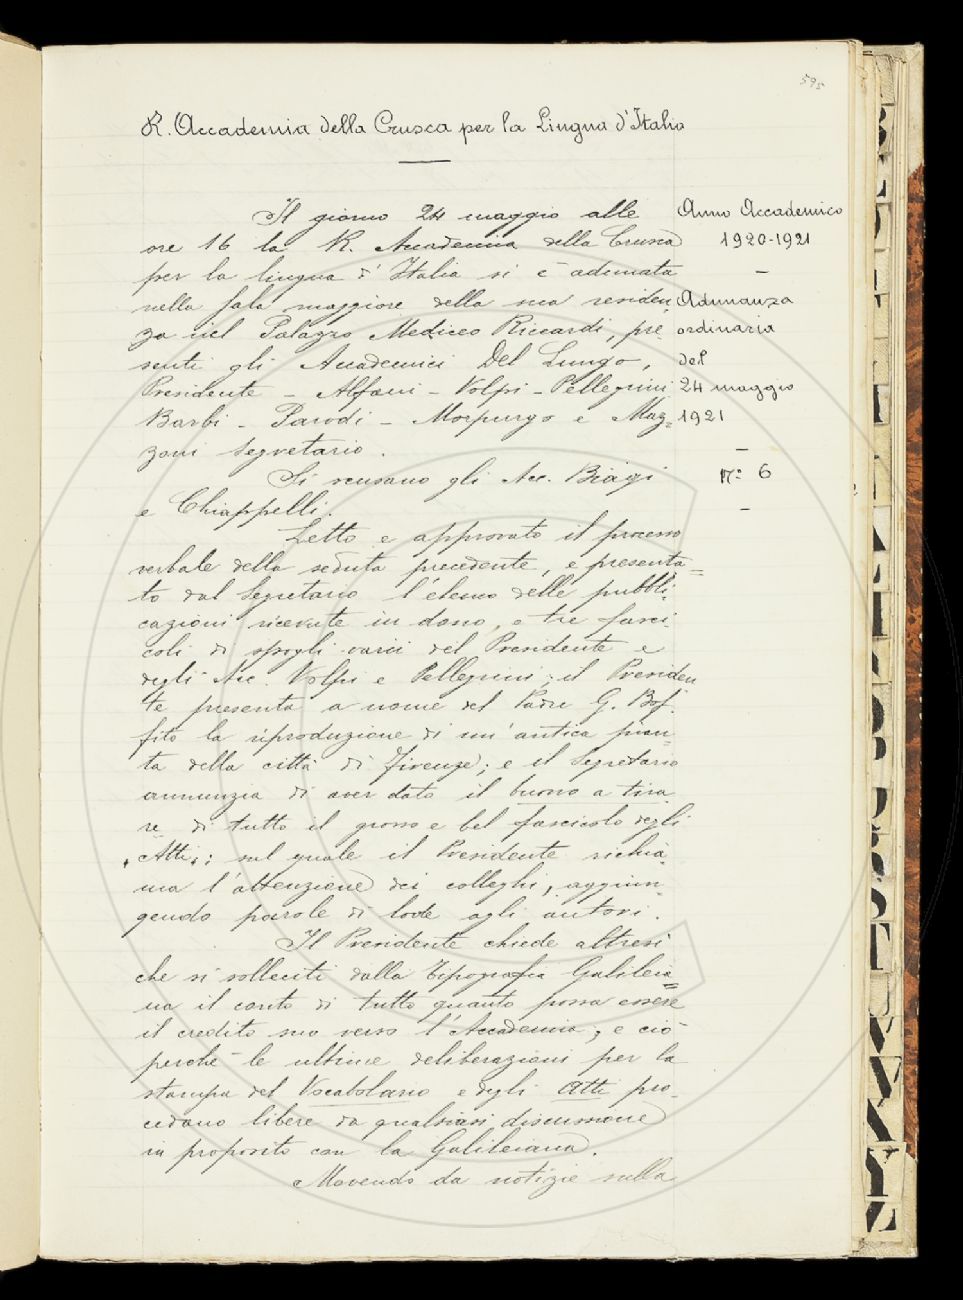 595
R. Accademia della Crusca per la Lingua d'Italia
Il giorno 24 maggio alle
ore 16 la R. Accademia della Crusca
per la lingua d'Italia si è adunata
nella sala maggiore della sua residen,
za nel Palazzo Mediceo Riccardi, pre-
senti gli Accademici Del Lungo,
Presidente - Alfani - Volpi - Pellegrini
Barbi - Parodi - Morpurgo e Maz=
zoni segretario.
Si scusano gli Acc. Biagi
e Chiappelli.
Letto e approvato il processo
verbale della seduta precedente, e presenta=
to dal Segretario l'elenco delle pubbli-
cazioni ricevute in dono, e tre fasci-
coli di spogli varii del Presidente e
degli Acc. Volpi e Pellegrini; il Presiden
te presenta a nome del Padre G. Bof-
fito la riproduzione di un'antica pian-
ta della città di Firenze; e il Segretario
annunzia di aver dato il buono a tira
re di tutto il grosso e bel fascicolo degli
"Atti"; sul quale il Presidente richia-
ma l'attenzione dei colleghi, aggiun-
gendo parole di lode agli autori.
Il Presidente chiede altresì
che si solleciti dalla Tipografia Galileia=
na il conto di tutto quanto possa essere
il credito suo verso l'Accademia; e ciò
perché le ultime deliberazioni per la
stampa del Vocabolario e degli Atti pro-
cedano libere da qualsiasi discussione
in proposito con la Galileiana.
Movendo da notizie sulla
Anno Accademico
1920-1921
Adunanza
ordinaria
del
24 maggio
1921
N: 6